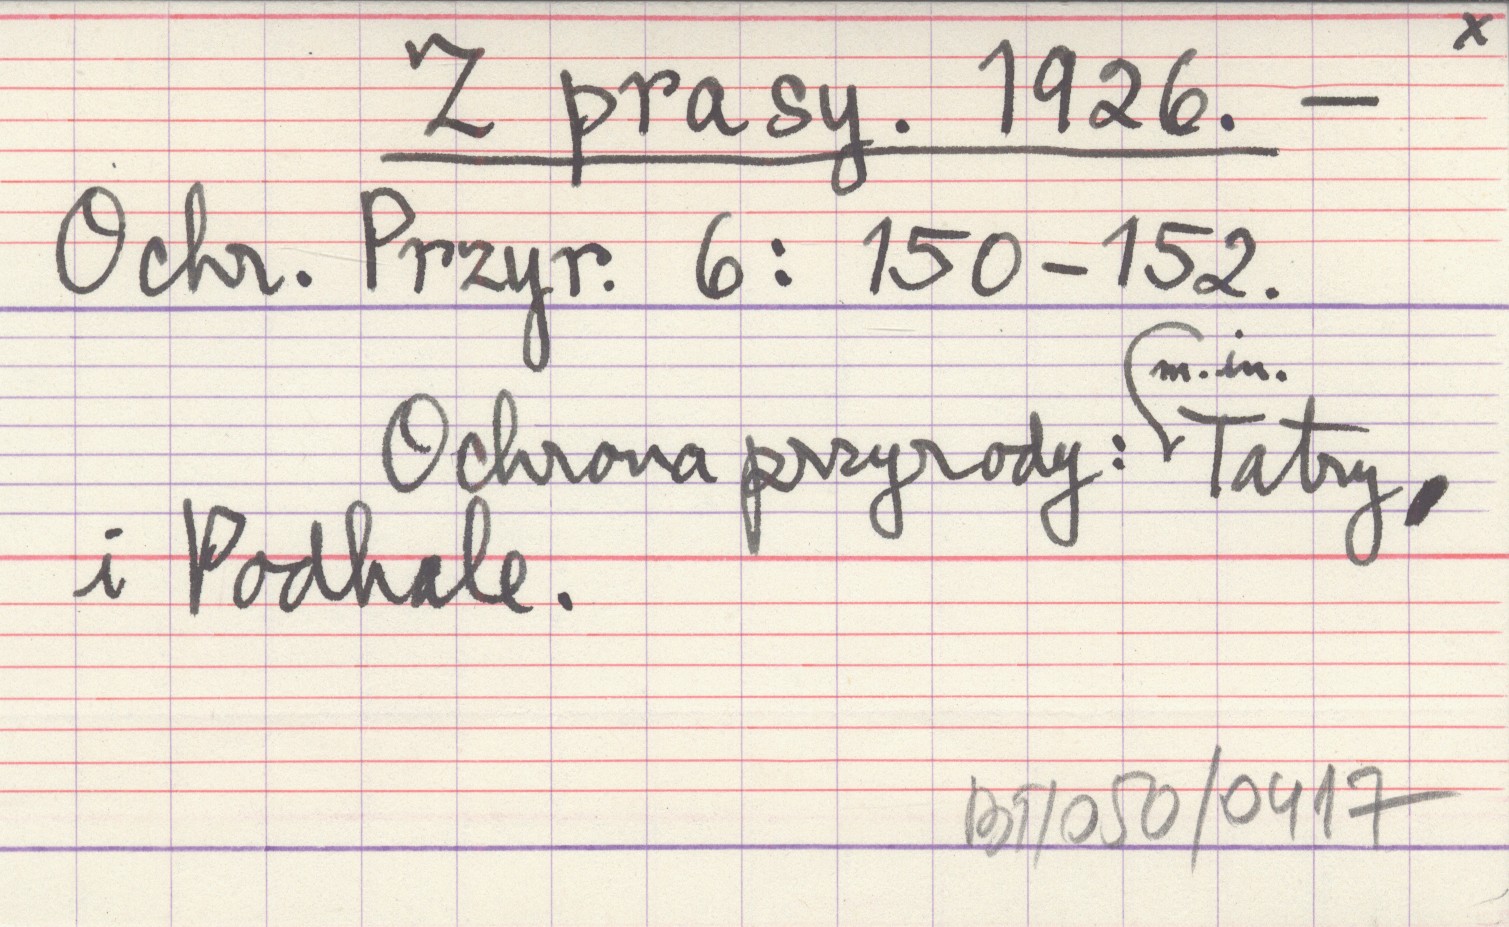 x
Z prasy. 1926. —
Ochr. Przyr. 6: 150-152.
m. in.
Ochrona przyrody: Tatry
i Podhale.
BT/050/0417